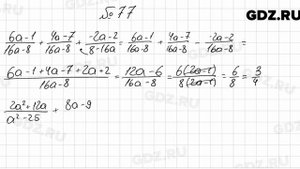 № 77
GDZ.RU
(6a-1)/(16a-8) + (4a-7)/(16a-8) + (-2a-2)/(8-16a) = (6a-1)/(16a-8) + (4a-7)/(16a-8) - (-2a-2)/(16a-8) =
(6a-1+4a-7+2a+2)/(16a-8) = (12a-6)/(16a-8) = 6(2a-1)/8(2a-1) = 6/8 = 3/4
(2a²+12a)/(a²-25) + 8a-9
GDZ.RU